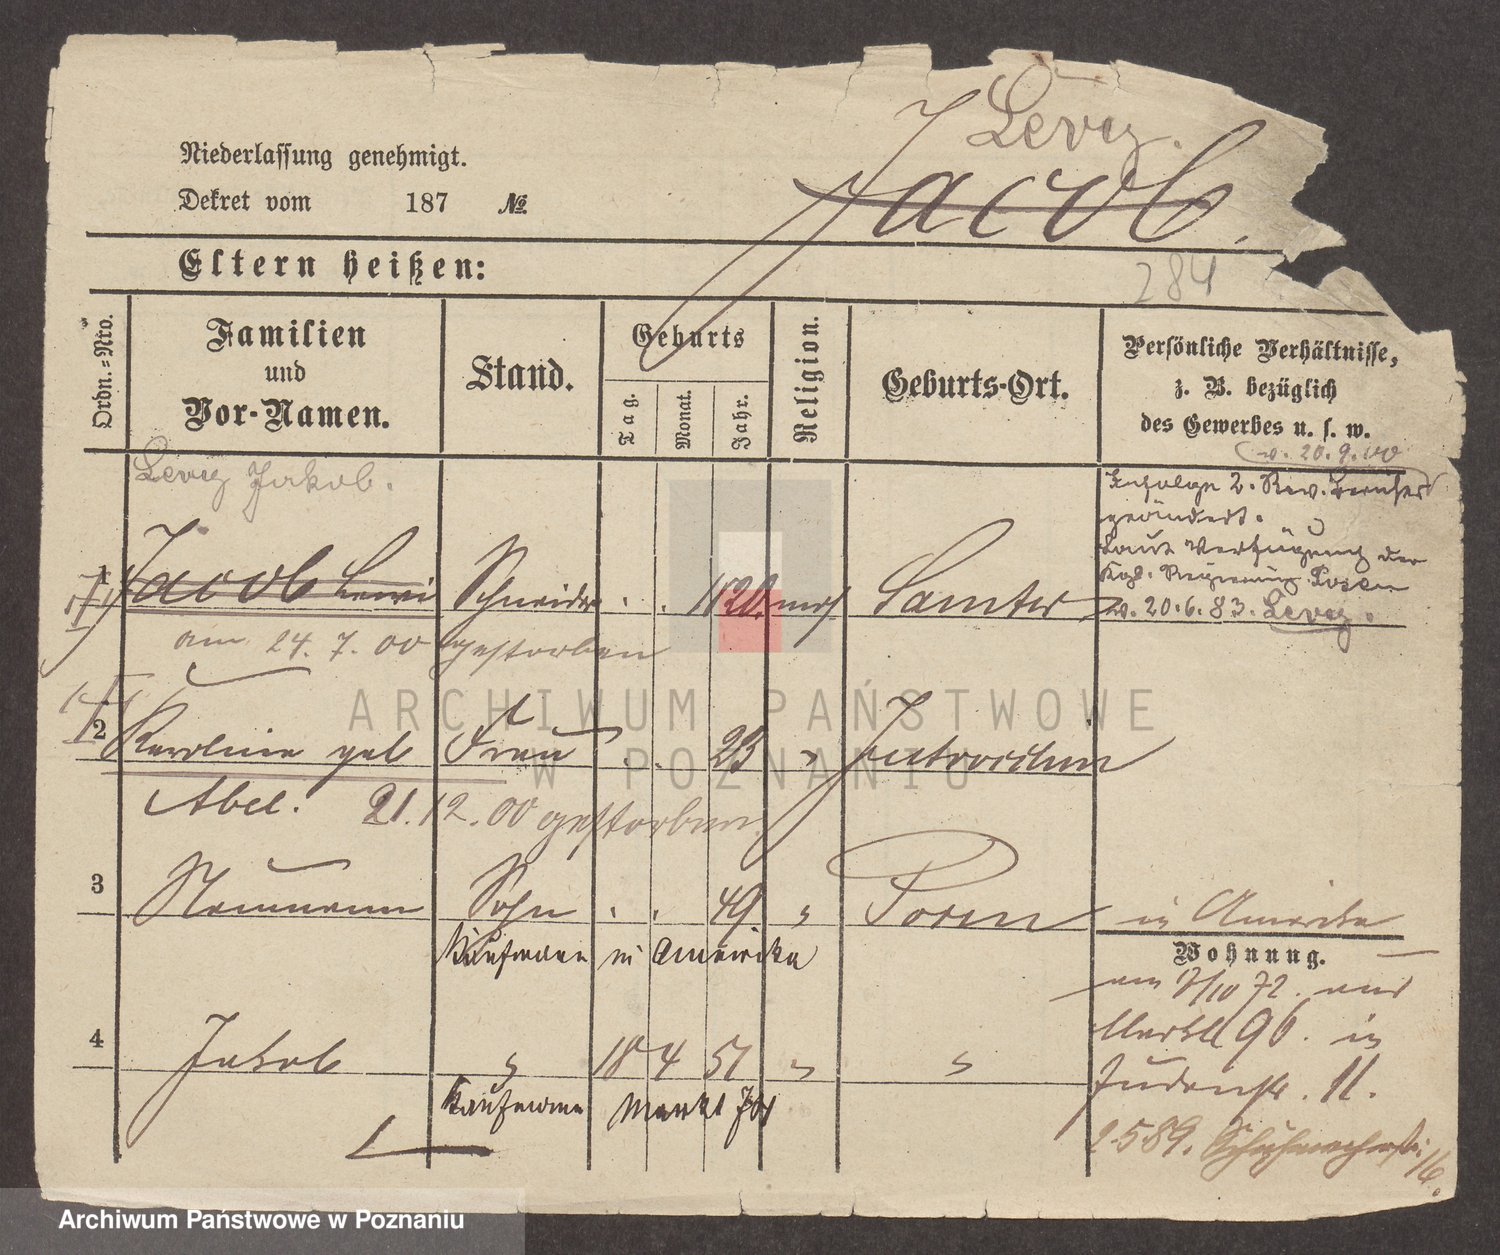 Levy.
Niederlassung genehmigt.
Dekret vom 187 №
Jacob.
Eltern heißen:
284
Ordn.-Nro.
Familien
und
Vor-Namen.
Stand.
Geburts
Tag.
Monat.
Jahr.
Religion.
Geburts-Ort.
Persönliche Verhältnisse,
z. B. bezüglich
des Gewerbes u. s. w.
v. 20.9.00
Levy Jakob.
geändert.
Laut Verfügung der
Kgl. Regierung Posen
v. 20.6.83. Levy.
1 Jacob Lewi Schneider 1820 mos Samter
am 24. 7. 00 gestorben
2 Karoline geb Frau 23 " Jutroschin
Abel. 21.12.00 gestorben.
3 Neumann Sohn 49 " Posen in Amerika
Kaufmann in Amerika
Wohnung.
am 17/10 72. aus
Markt 96. in
4 Jakob " 18 4 51 " "
Judenstr. 11.
Kaufmann Markt
2.5 89. Schuhmacherstr. 16.
ARCHIWUM PAŃSTWOWE
W POZNANIU
Archiwum Państwowe w Poznaniu